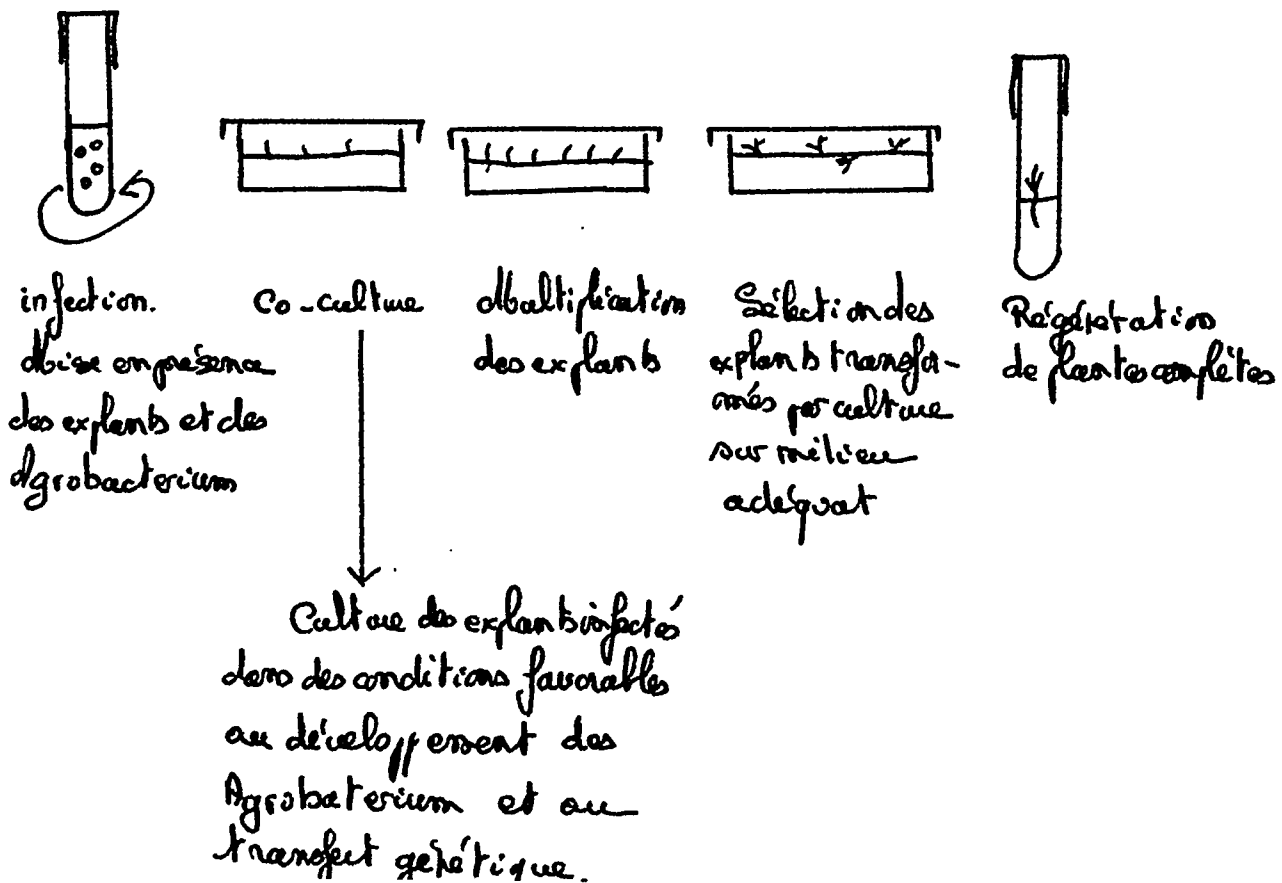 infection.
Mise en présence
des explants et des
Agrobacterium
Co-culture
Multiplication
des explants
Sélection des
explants transfor-
més par culture
sur milieu
adéquat
Régénération
de plantes complètes
Culture des explants infectés
dans des conditions favorables
au développement des
Agrobaterium et au
transfect génétique.